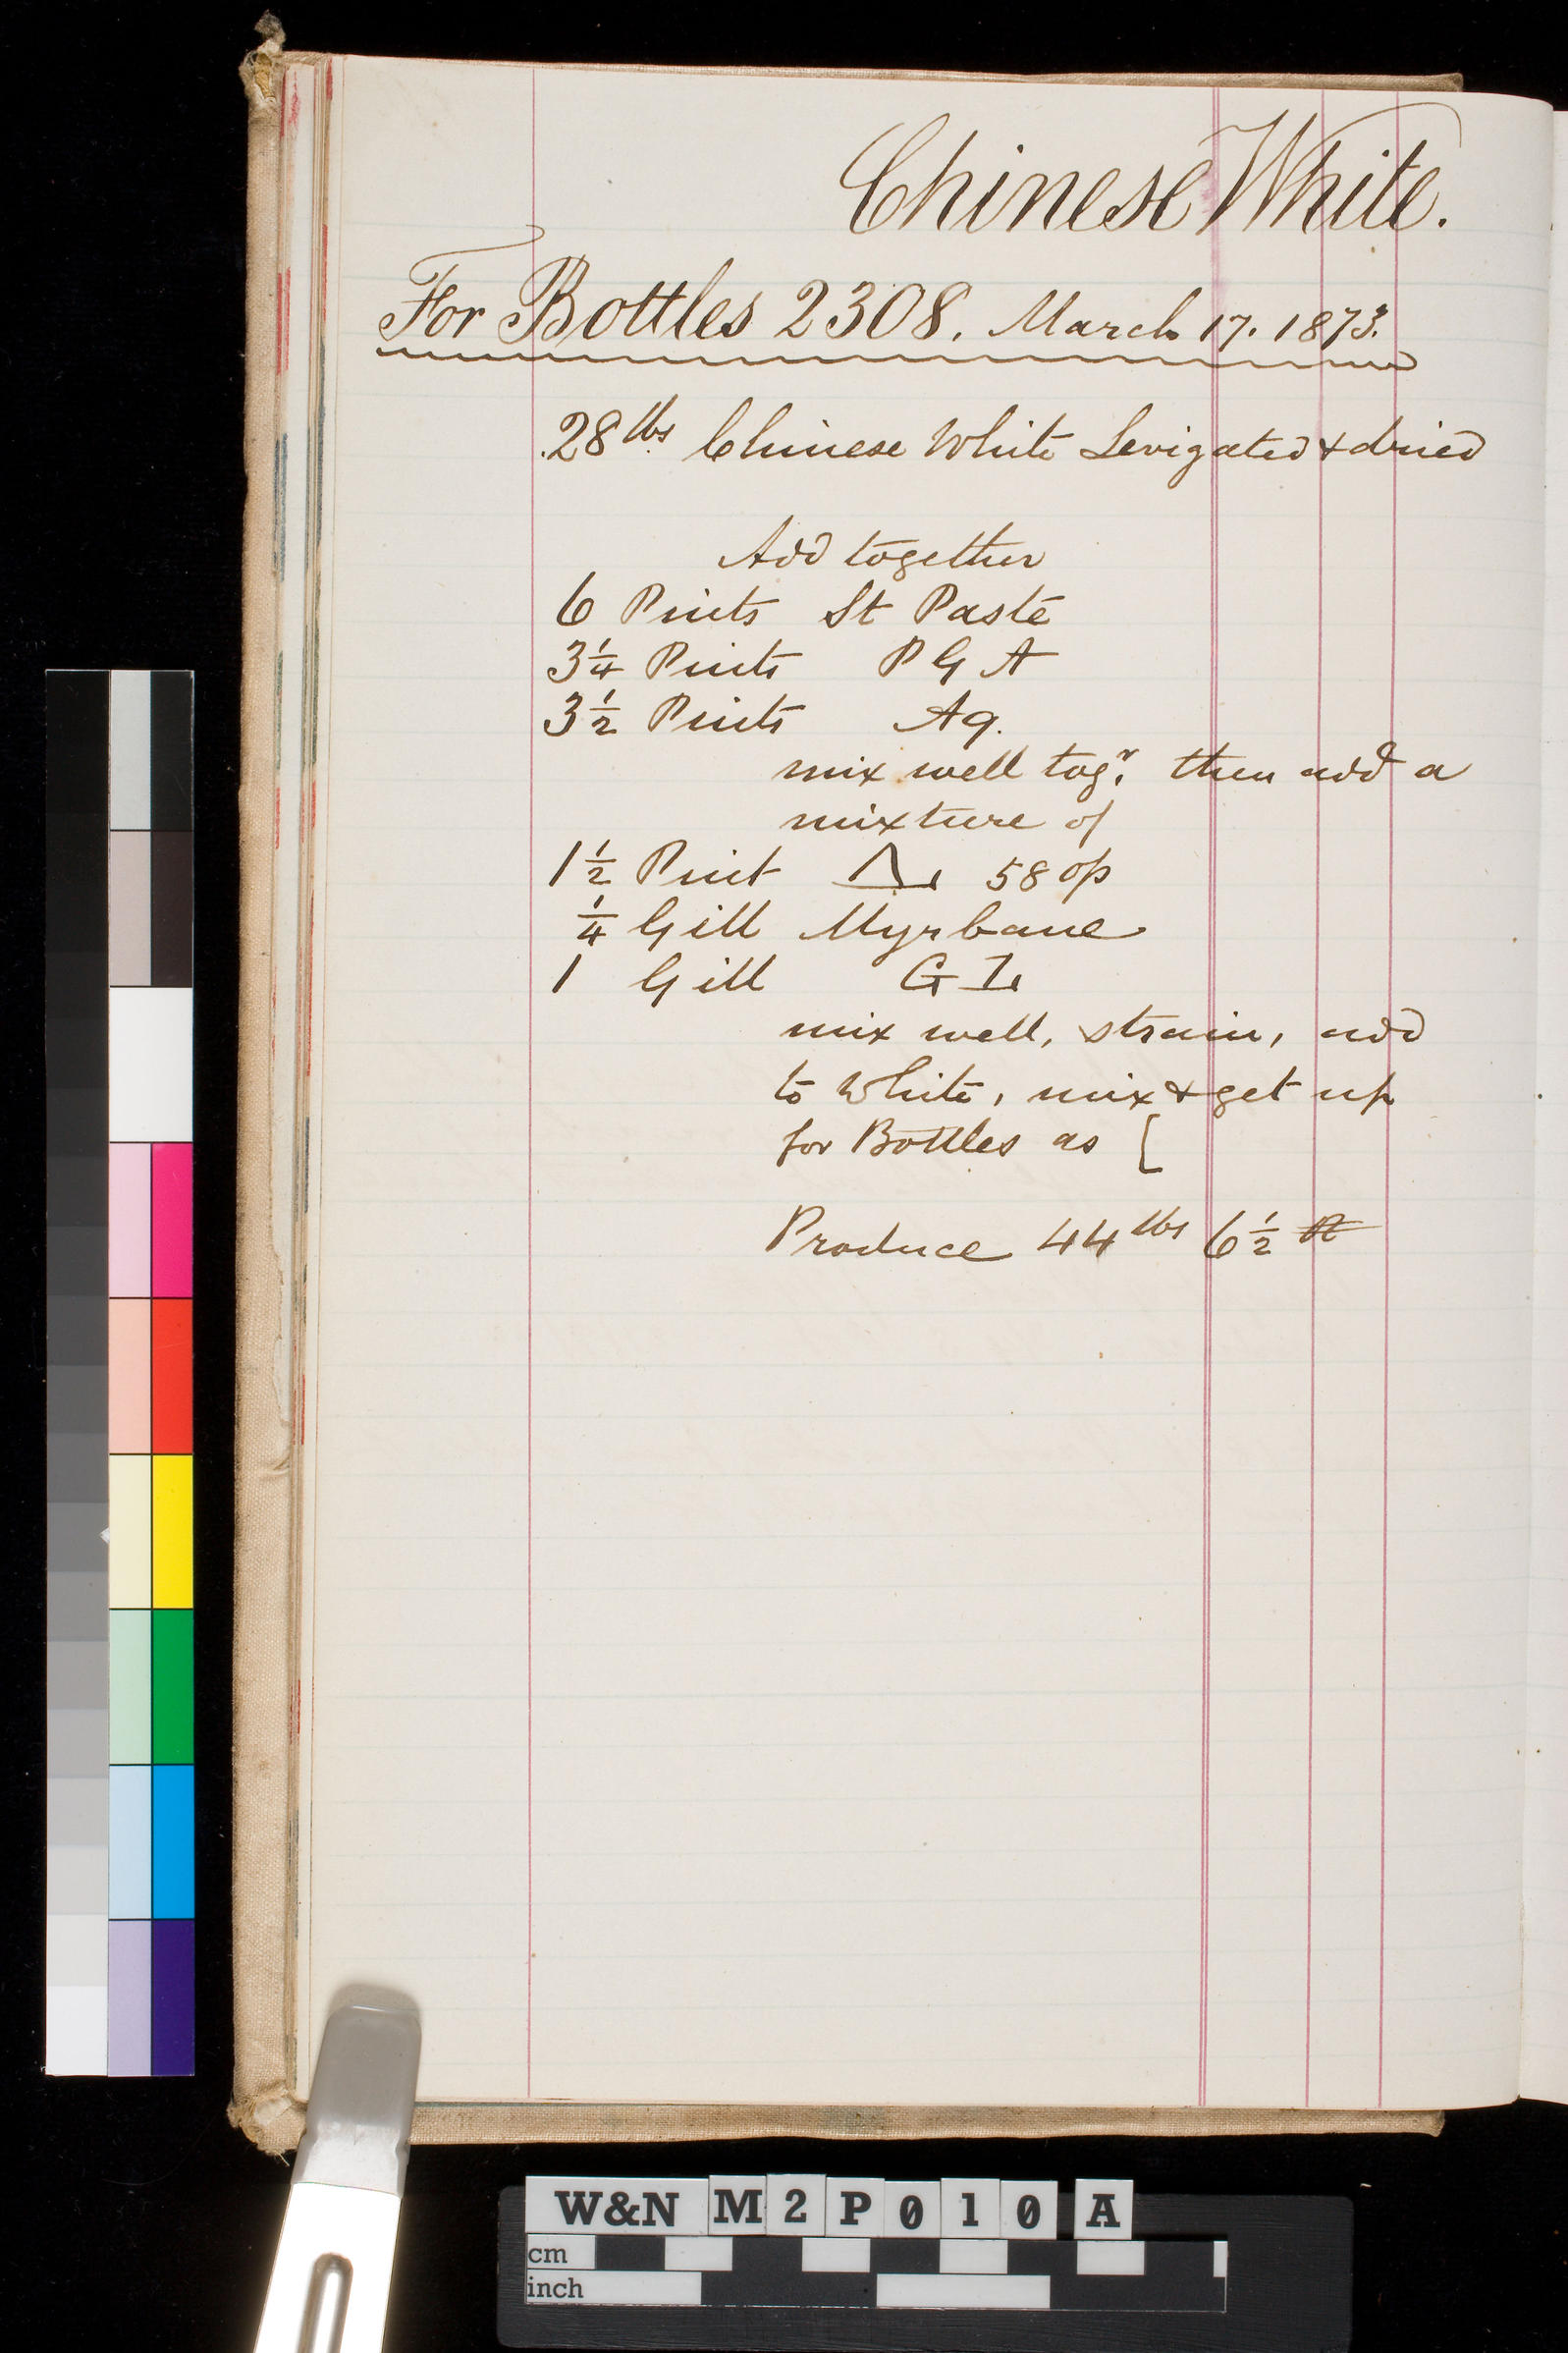 Chinese White.
For Bottles 2308. March 17. 1873.
28 lbs Chinese White Levigated & dried
Add together
6 Pints St Paste
3 1/4 Pints P G A
3 1/2 Pints Aq.
mix well togr. then add a
mixture of
1 1/2 Pint 58 op
1/4 Gill Myrbane
1 Gill G
mix well, strain, add
to White, mix & get up
for Bottles as [
Produce 44 lbs 6 1/2
W&N M2P010A
cm
inch